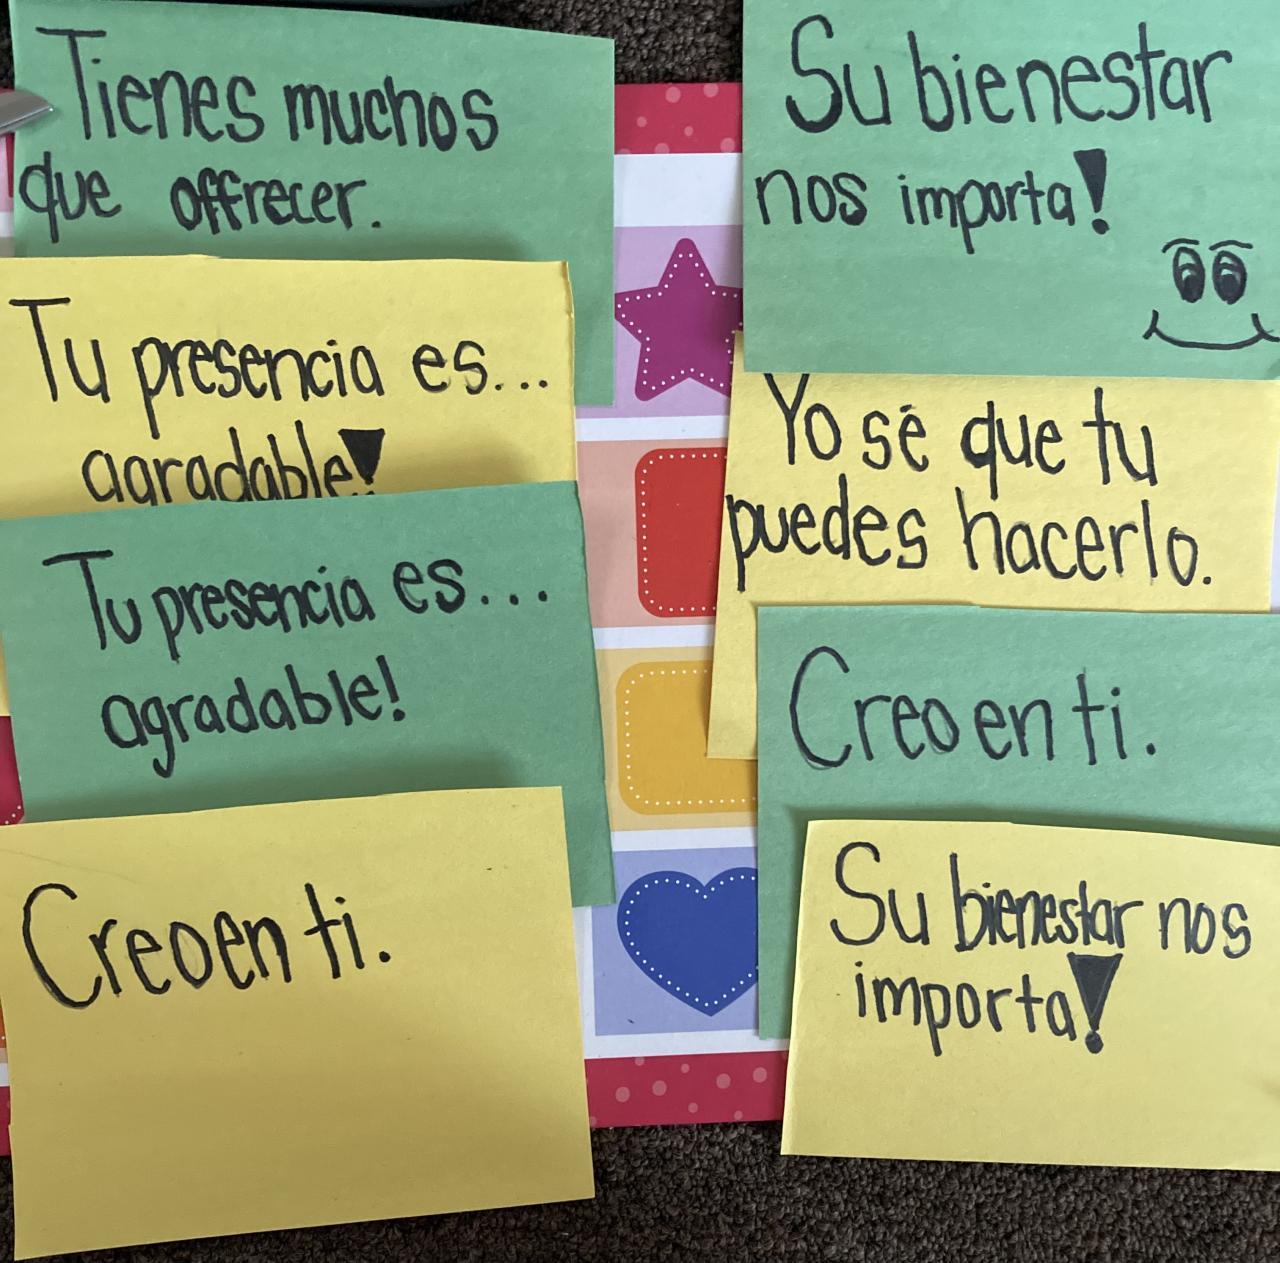 Tienes muchos
que offrecer.
Tu presencia es...
agradable!
Tu presencia es...
agradable!
Creo en ti.
Su bienestar
nos importa!
Yo sé que tu
puedes hacerlo.
Creo en ti.
Su bienestar nos
importa!